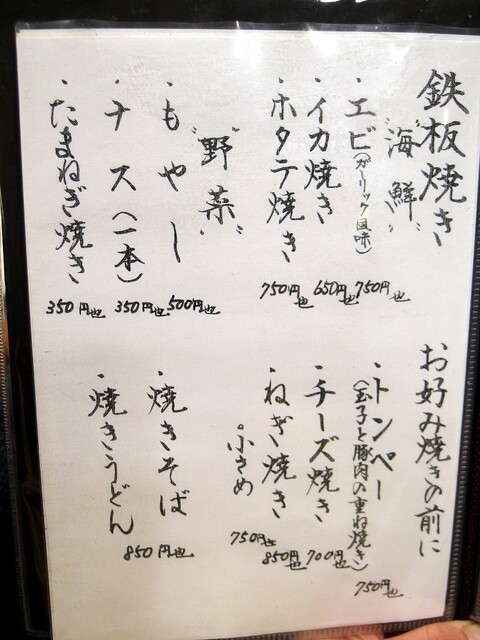 鉄板焼き
"海鮮"
・エビ(ガーリック風味)
750円也
・イカ焼き
650円也
・ホタテ焼き
750円也
"野菜"
・もやし
500円也
・ナス(一本)
350円也
・たまねぎ焼き
350円也
お好み焼きの前に
・トンペー
(玉子と豚肉の重ね焼き)
750円也
・チーズ焼き
700円也
・ねぎ焼き
850円也
。小さめ
750円也
・焼きそば
・焼きうどん
850円也